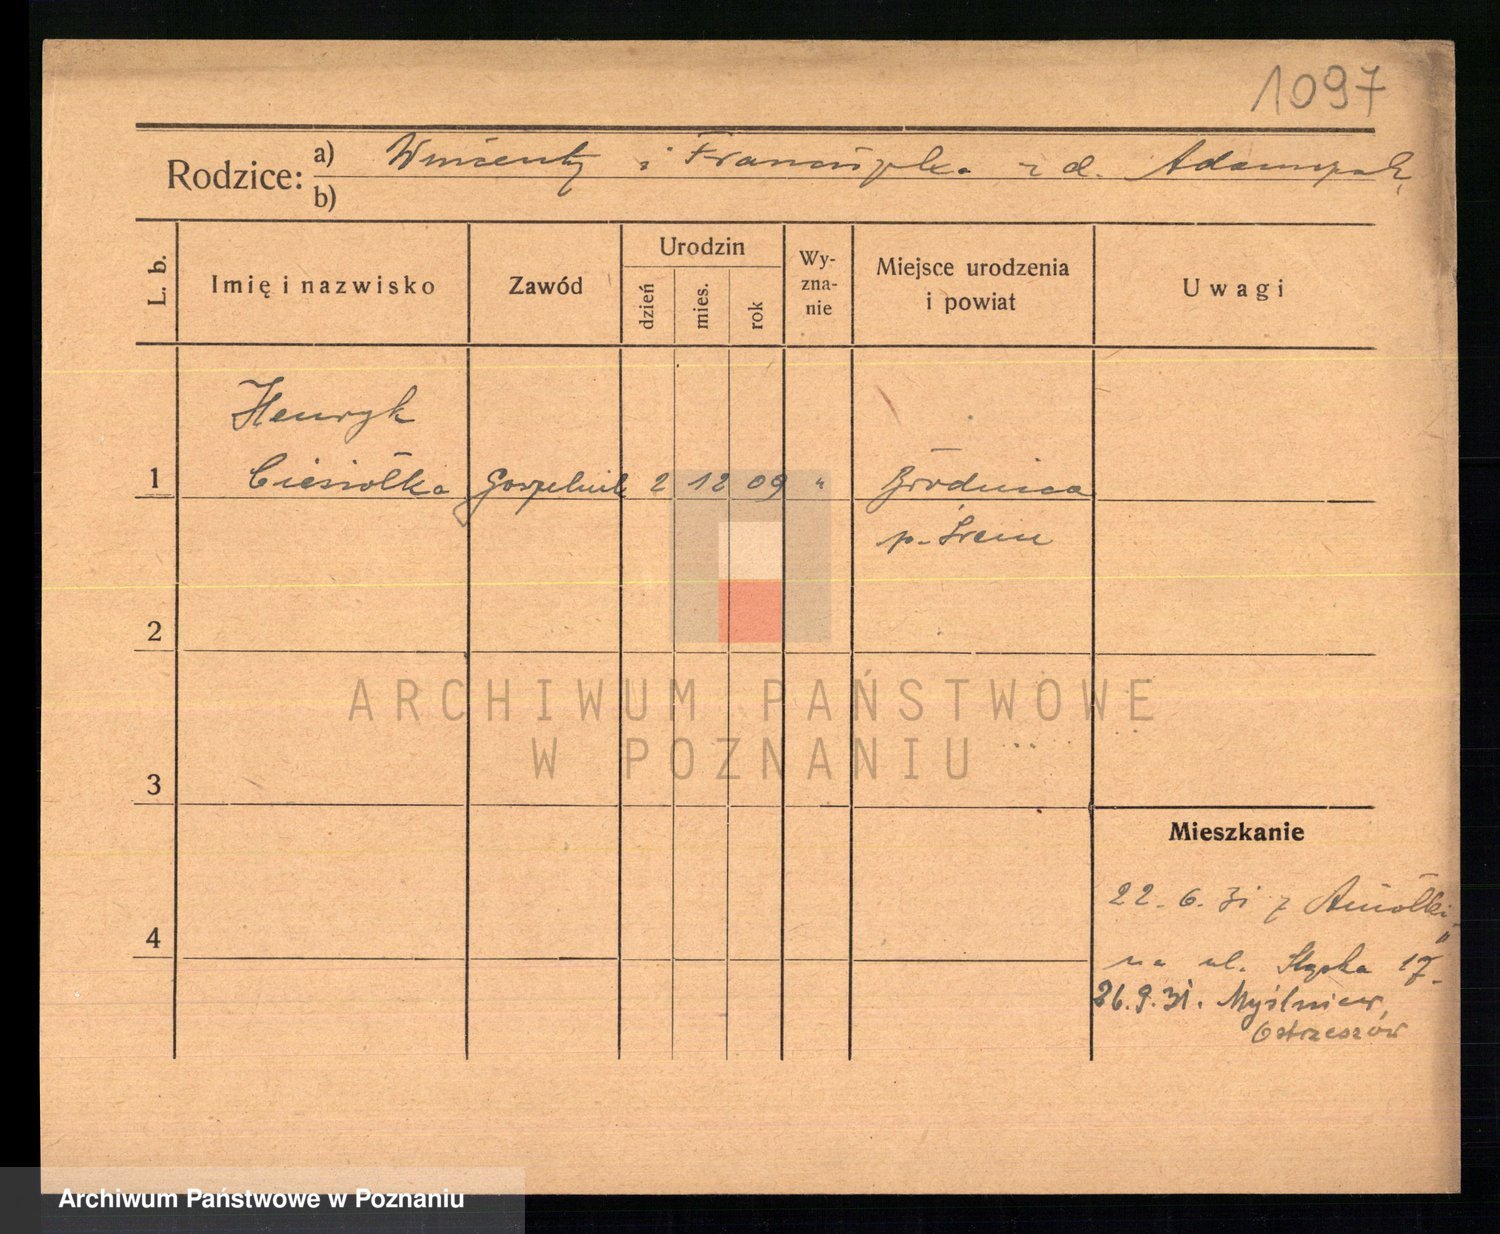 1097
Rodzice: a) Wincenty i Franciszka z d. Adamczak
b)
L. b.
Imię i nazwisko
Zawód
Urodzin
dzień
mies.
rok
Wy-
zna-
nie
Miejsce urodzenia
i powiat
Uwagi
Henryk
1 Ciesiołka Gorzelnik 2 12 09 " Brodnica
p. Śrem
2
3
4
Mieszkanie
22. 6. 31 z
na ul. Śląska 17.
26.9.31. Myślniew,
Ostrzeszów
ARCHIWUM PAŃSTWOWE
W POZNANIU
Archiwum Państwowe w Poznaniu